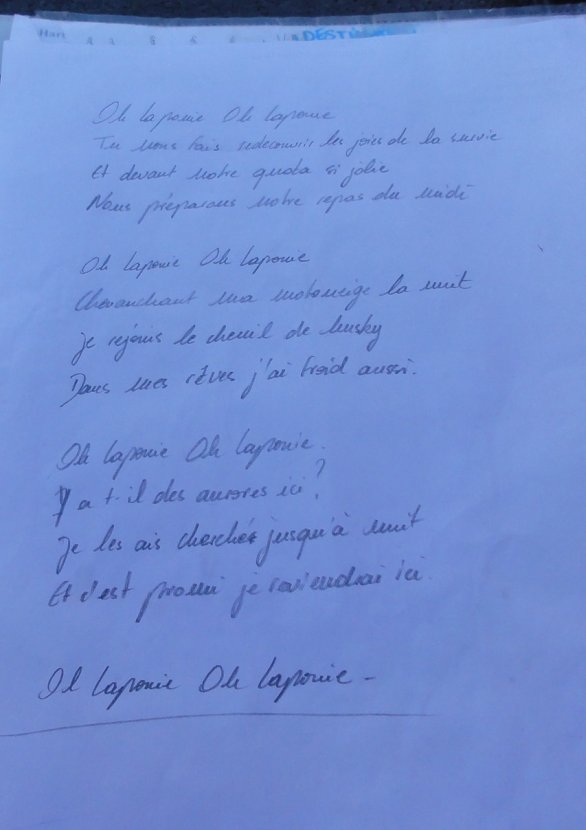 DESTI
Oh Laponie Oh Laponie
Tu nous fais redécouvrir les joies de la survie
Et devant notre quota si jolie
Nous préparons notre repas du midi
Oh Laponie Oh Laponie
Chevauchant ma motoneige la nuit
je rejoins le chenil de husky
Dans mes rêves j'ai froid aussi.
Oh Laponie Oh Laponie.
Y a t-il des aurores ici ?
Je les ais cherchés jusqu'à nuit
Et c'est promi je reviendrai ici.
Oh Laponie Oh Laponie -